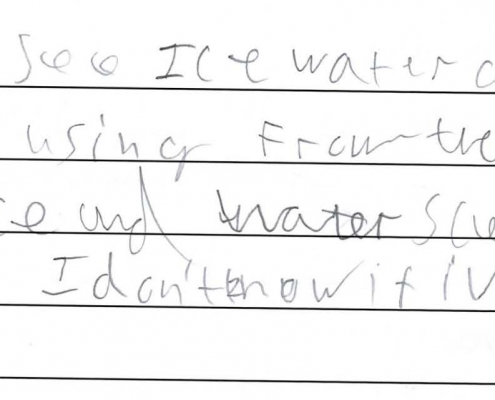 See Ice water
using From the
and water
I don't know if